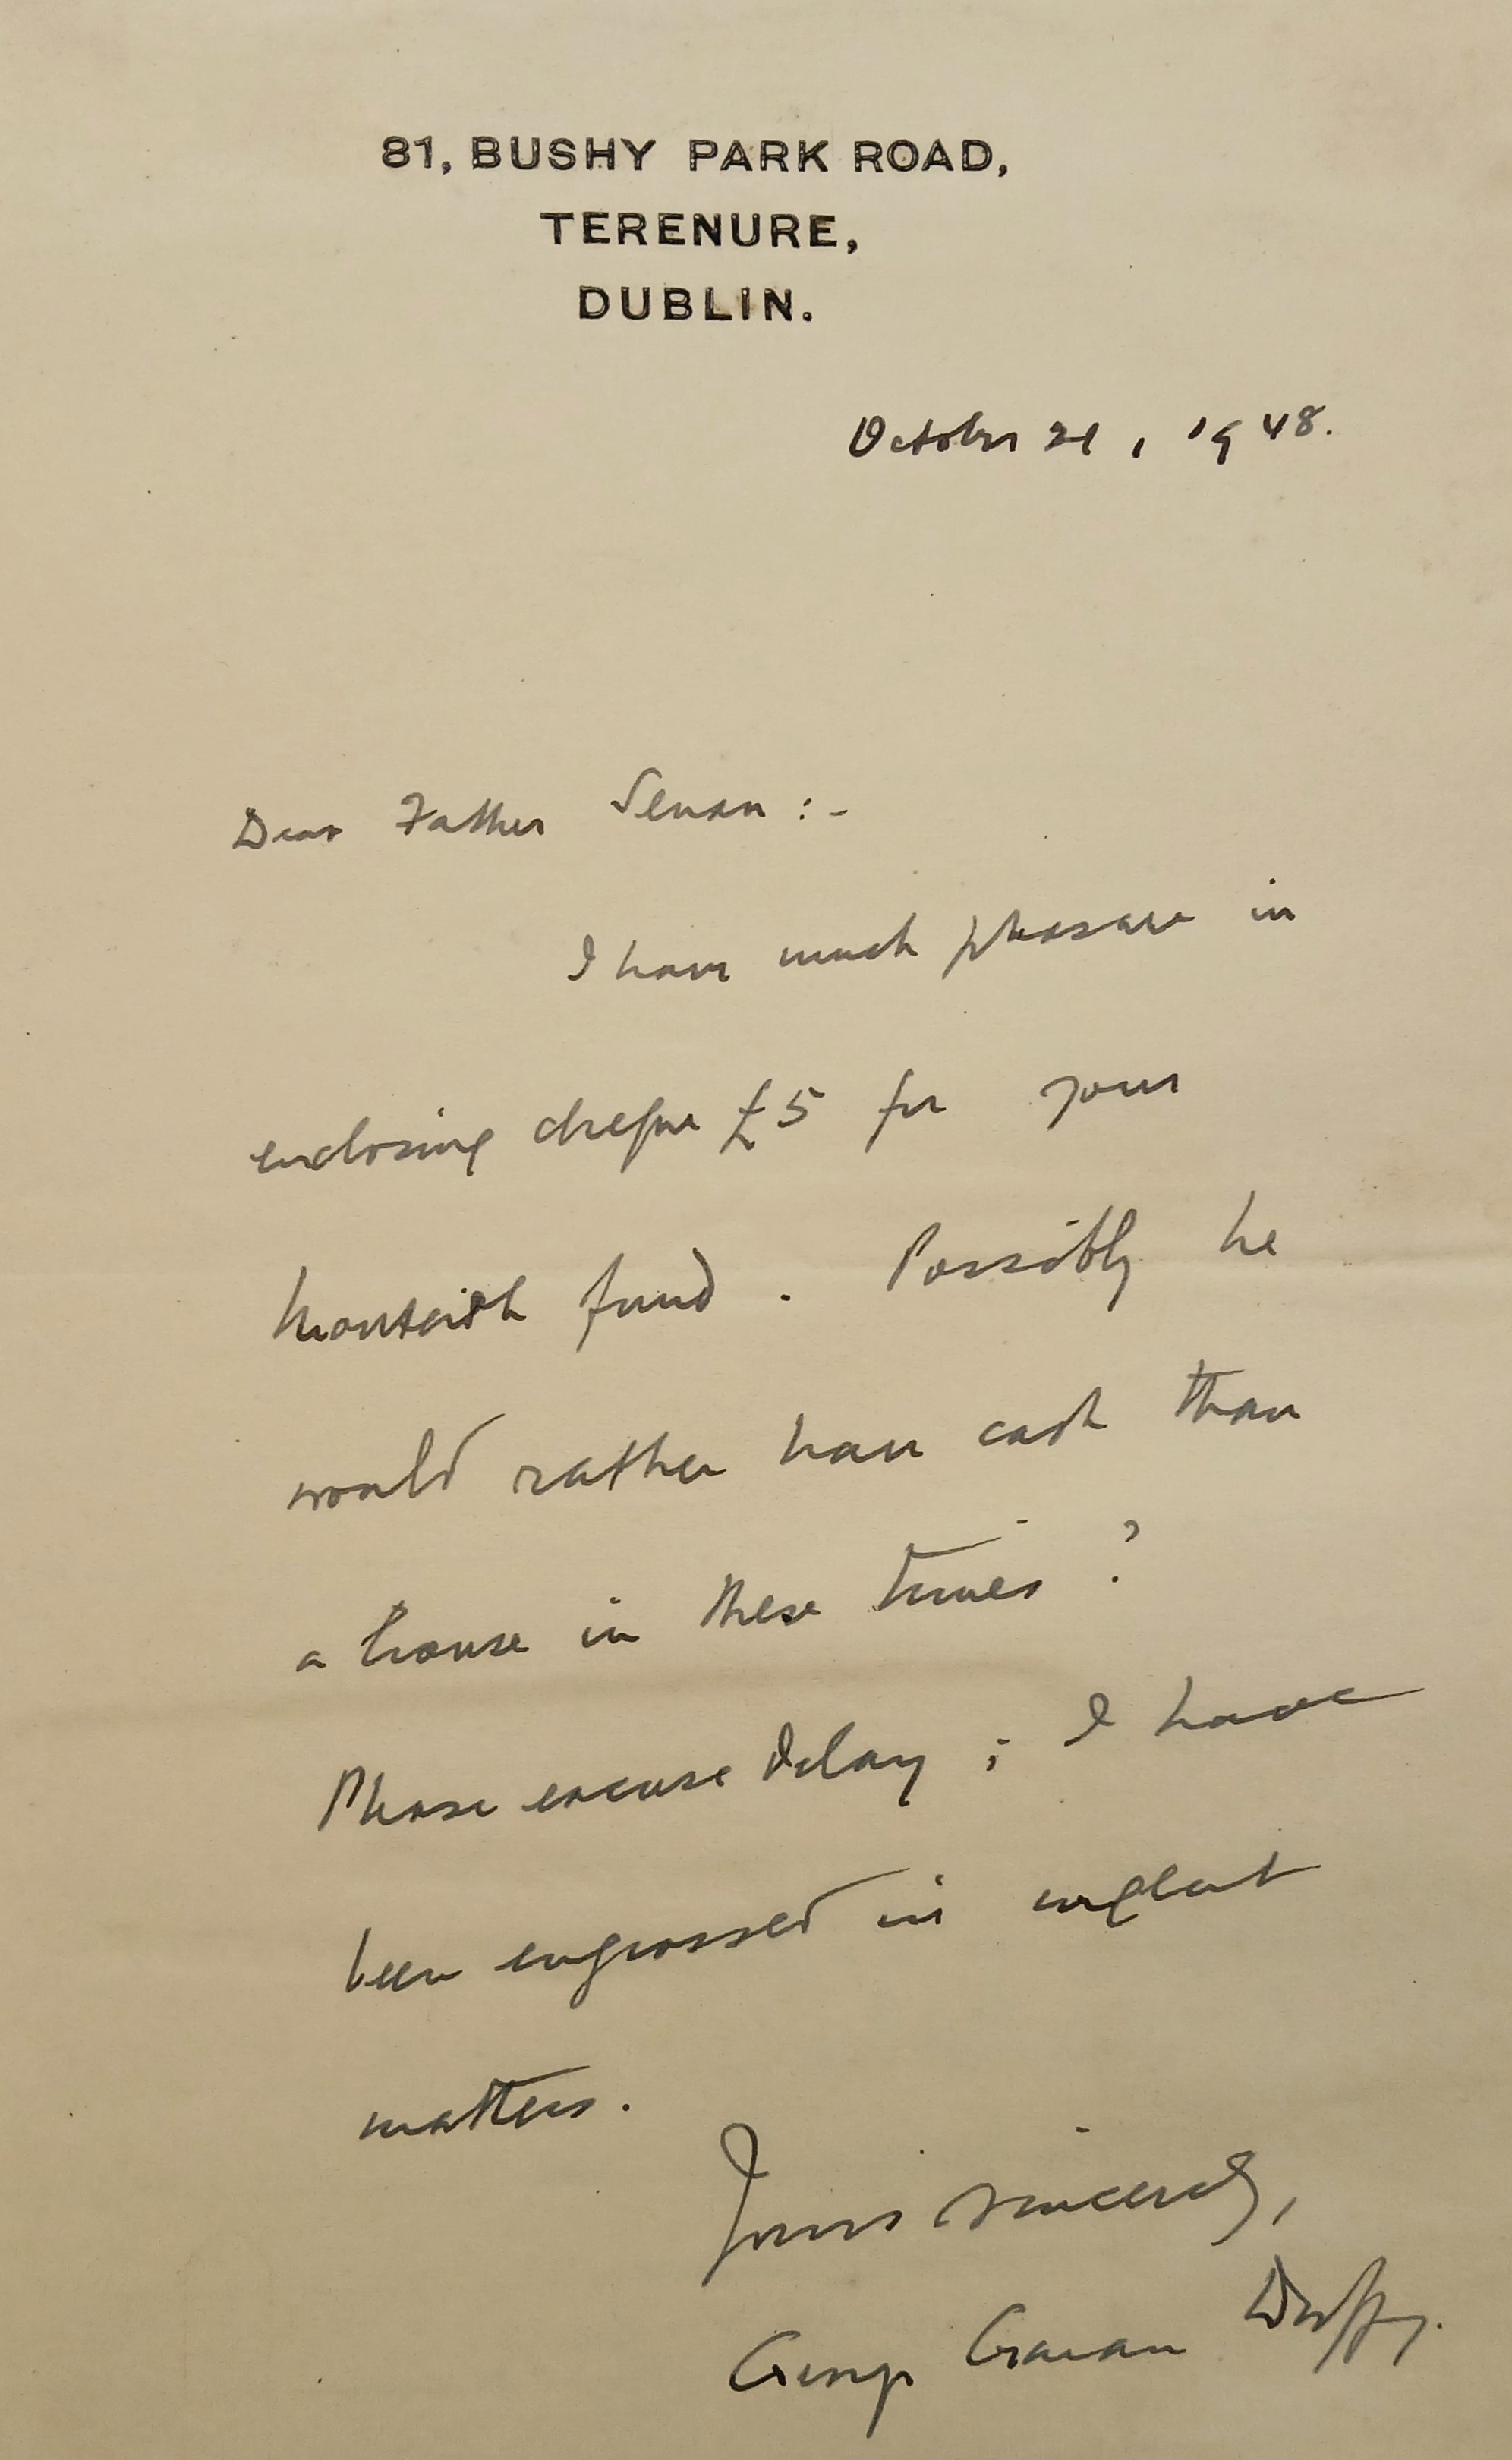 81, BUSHY PARK ROAD,
TERENURE,
DUBLIN.
October 21, 1948.
Dear Father Senan :-
I have much pleasure in
enclosing cheque £5 for your
Monteith fund. Possibly he
would rather have cash than
a house in these times?
Please excuse delay; I have
been engrossed in urgent
matters.
Yours sincerely,
George Gavan Duffy.